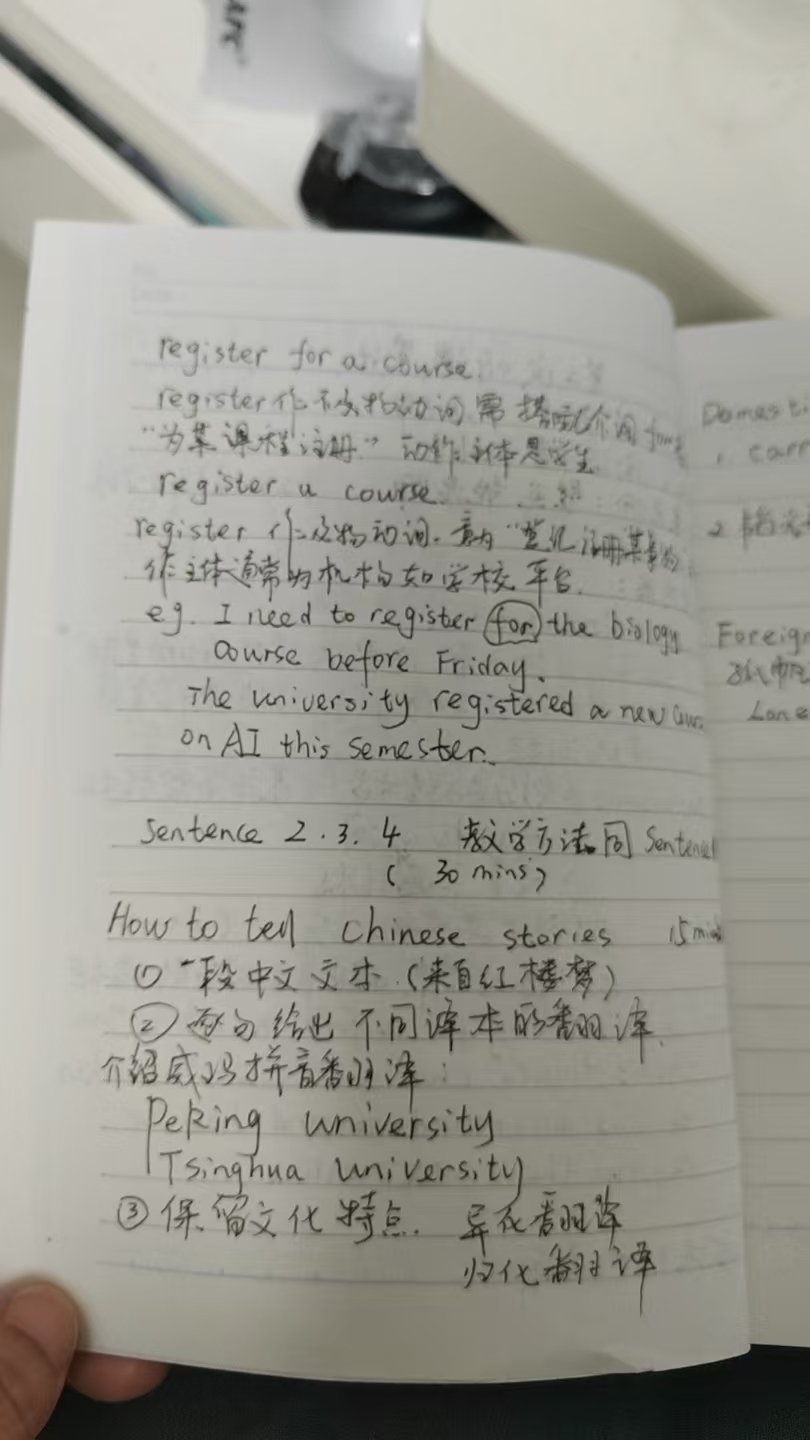 register for a course.
register作不及物动词 需搭配介词 for
"为某课程注册" 动作主体是学生
register a course.
register 作及物动词. 意为"登记注册某事物
作主体通常为机构如学校平台.
eg. I need to register for the biology
course before Friday.
The university registered a new
on AI this semester.
Sentence 2.3.4 教学方法同 Sentence1
( 30 mins)
How to tell Chinese stories 15 mins
① 一段中文文本.(来自红楼梦)
② 每句给出不同译本的翻译.
介绍威玛拼音翻译:
Peking university
Tsinghua university
③ 保留文化特点. 异化翻译
归化翻译
Domesti
, carr
2
Foreign
Lane